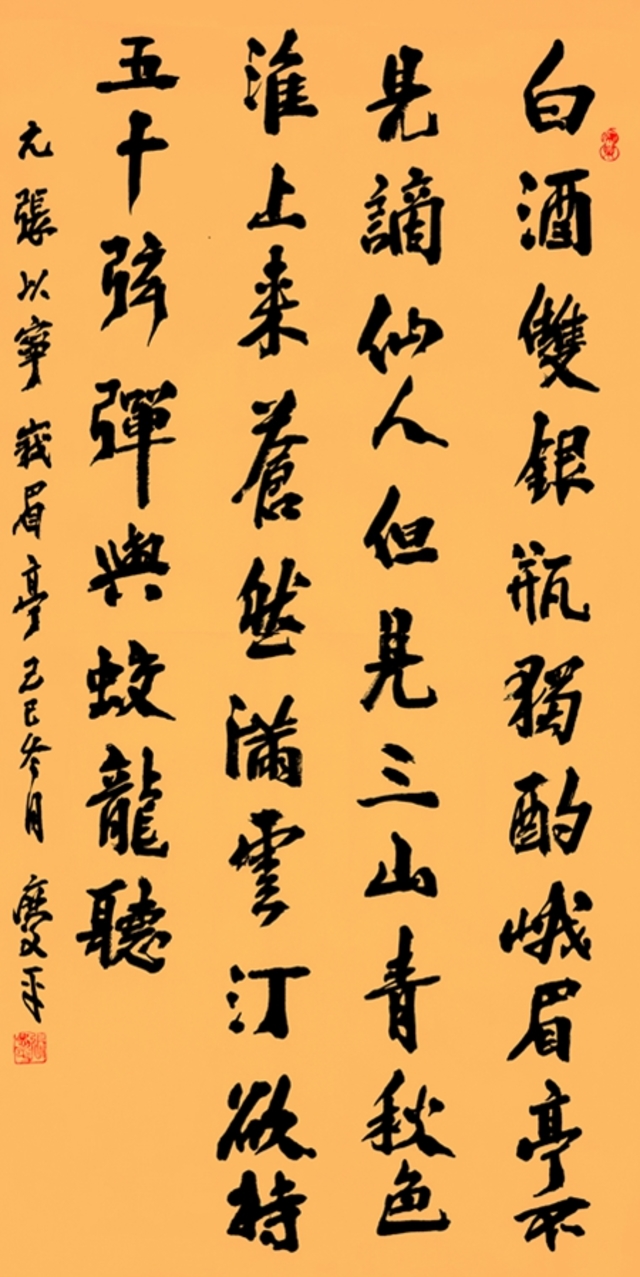 白酒雙銀瓶獨酌峨眉亭不
見謫仙人但見三山青秋色
淮上來蒼然滿雲汀欲持
五十弦彈與蛟龍聽
元張以寧峩眉亭己巳冬月